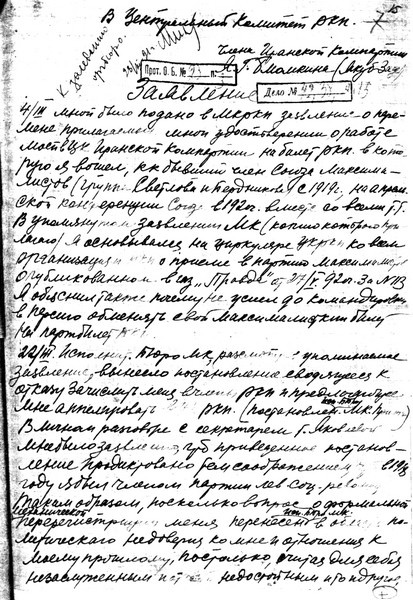 В Центральный Комитет РКП.
Члена Иранской Компартии
Я. Г. Блюмкина (Якуб-Заде)
К заседанию
Оргбюро.
Прот. О. Б. №
Дело №
Заявление
4/III мной было подано в МКРКП заявление о
мене прилагаемого мной удостоверения о работе
моей в ЦК Иранской Компартии на билет РКП. в кото-
рую я вошел, как бывший член Союза Максима-
листов (группа Светлова и Бердникова) с 1919 г. на
ской конференции Союза в 1920 г. вместе со всеми т.т.
В упомянутом заявлении МК (копию которого при-
лагаю) я основывался на циркуляре ЦКРКП ко всем
организациям о приеме в партию Максималистов
опубликованном в газ. „Правда“ от 27/V 920 г. за № 113
Я объяснил также почему не успел до командировки
в Персию обменять свой Максималистский билет
на партбилет РКП
22/III. Исполнит. Бюро МК, рассмотрев упоминаемое
заявление, вынесло постановление сводящееся к
отказу зачислить меня в члены РКП и
мне апеллировать РКП. (постановлен. МК.
В личном разговоре с секретарем т. Яковлевой
мне было заявлено, что приведенное постанов-
ление продиктовано тем соображением, в 1918
году я был членом партии лев. соц.-револ.
Таким образом, поскольку вопрос о формальной
механической
перерегистрации меня перенесен в область по-
литического недоверия ко мне и отношения к
моему прошлому, постольку, считая для себя
незаслуженным и недостойным и то и другое,